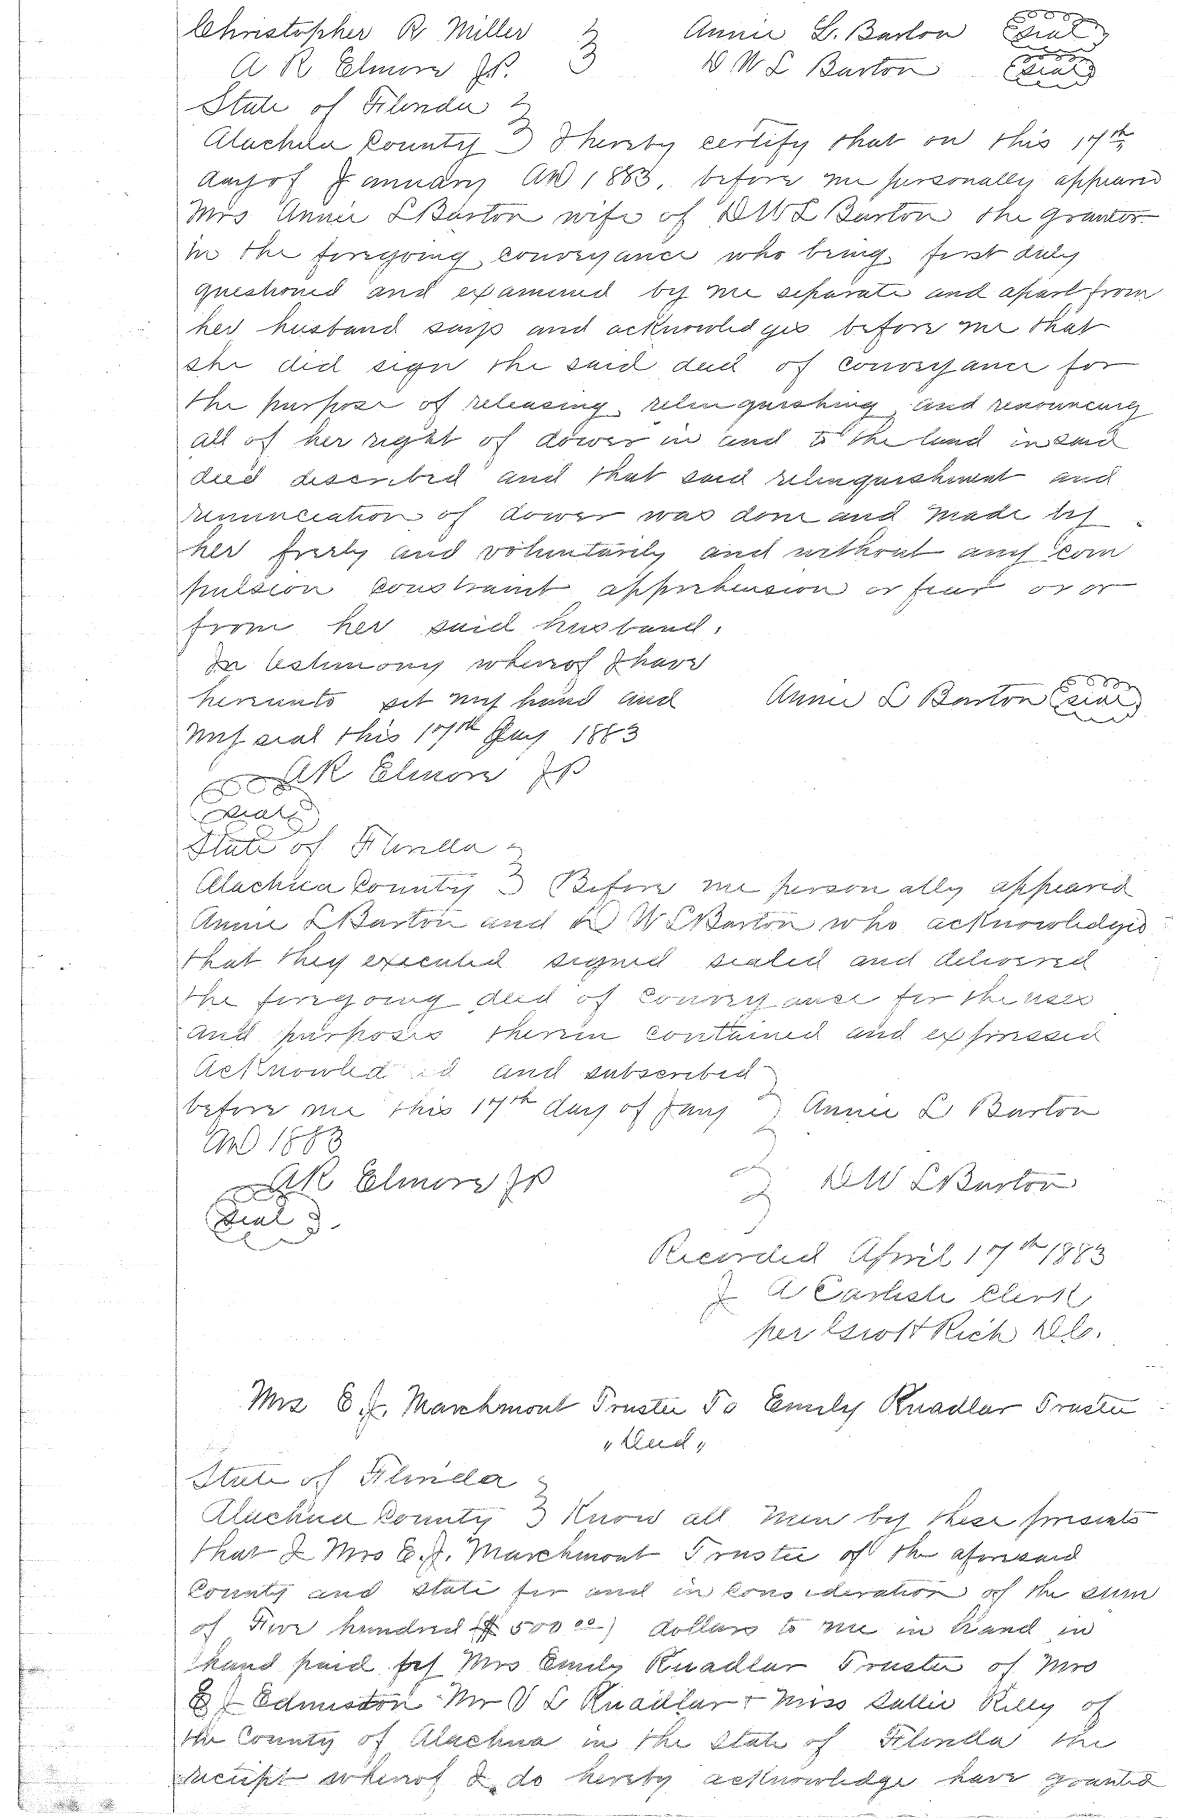 Christopher R Miller Annie L. Barton Seal
A R Elmore J.P. D W L Barton Seal
State of Florida
Alachua County I hereby certify that on this 17th
day of January AD 1883, before me personally appeared
Mrs Annie L Barton wife of D W L Barton the grantor
in the foregoing conveyance who being first duly
questioned and examined by me separate and apart from
her husband says and acknowledges before me that
she did sign the said deed of conveyance for
the purpose of releasing, relinquishing and renouncing
all of her right of dower in and to the land in said
deed described and that said relinquishment and
renunciation of dower was done and made by
her freely and voluntarily and without any com
pulsion constraint apprehension or fear or or
from her said husband.
In testimony whereof I have
hereunto set my hand and Annie L Barton Seal
my seal this 17th Jany 1883
A R Elmore J P
Seal
State of Florida
Alachua County Before me person ally appeared
Annie L Barton and D W L Barton who acknowledged
that they executed signed sealed and delivered
the foregoing deed of conveyance for the uses
and purposes therein contained and expressed
Acknowled ed and subscribed
before me this 17th day of Jany Annie L Barton
AD 1883
A R Elmore J P D W L Barton
Seal
Recorded April 17th 1883
J A Carlisle Clerk
per Geo H Rich D.C.
Mrs E. J. Marchmont Trustee To Emily Knadlar Trustee
"Deed"
State of Florida
Alachua County Know all Men by these presents
that I Mrs E. J. Marchmont Trustee of the aforesaid
County and State for and in consideration of the sum
of Five hundred ($500 00) dollars to me in hand in
hand paid by Mrs Emily Knadlar Trustee of Mrs
E J Edmiston Mr V L Knadlar & Miss Sallie Kelly of
the County of Alachua in the State of Florida the
receipt whereof I do hereby acknowledge have granted